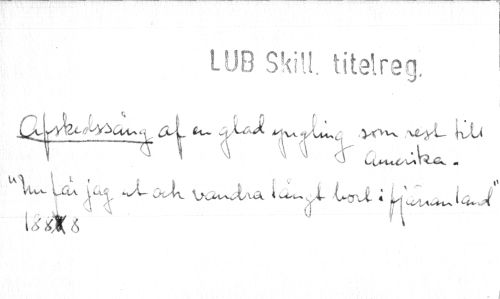 LUB Skill. titelreg.
Afskedssång af en glad yngling som rest till
Amerika.
"Nu får jag ut och vandra långt bort i fjärran land"
1888